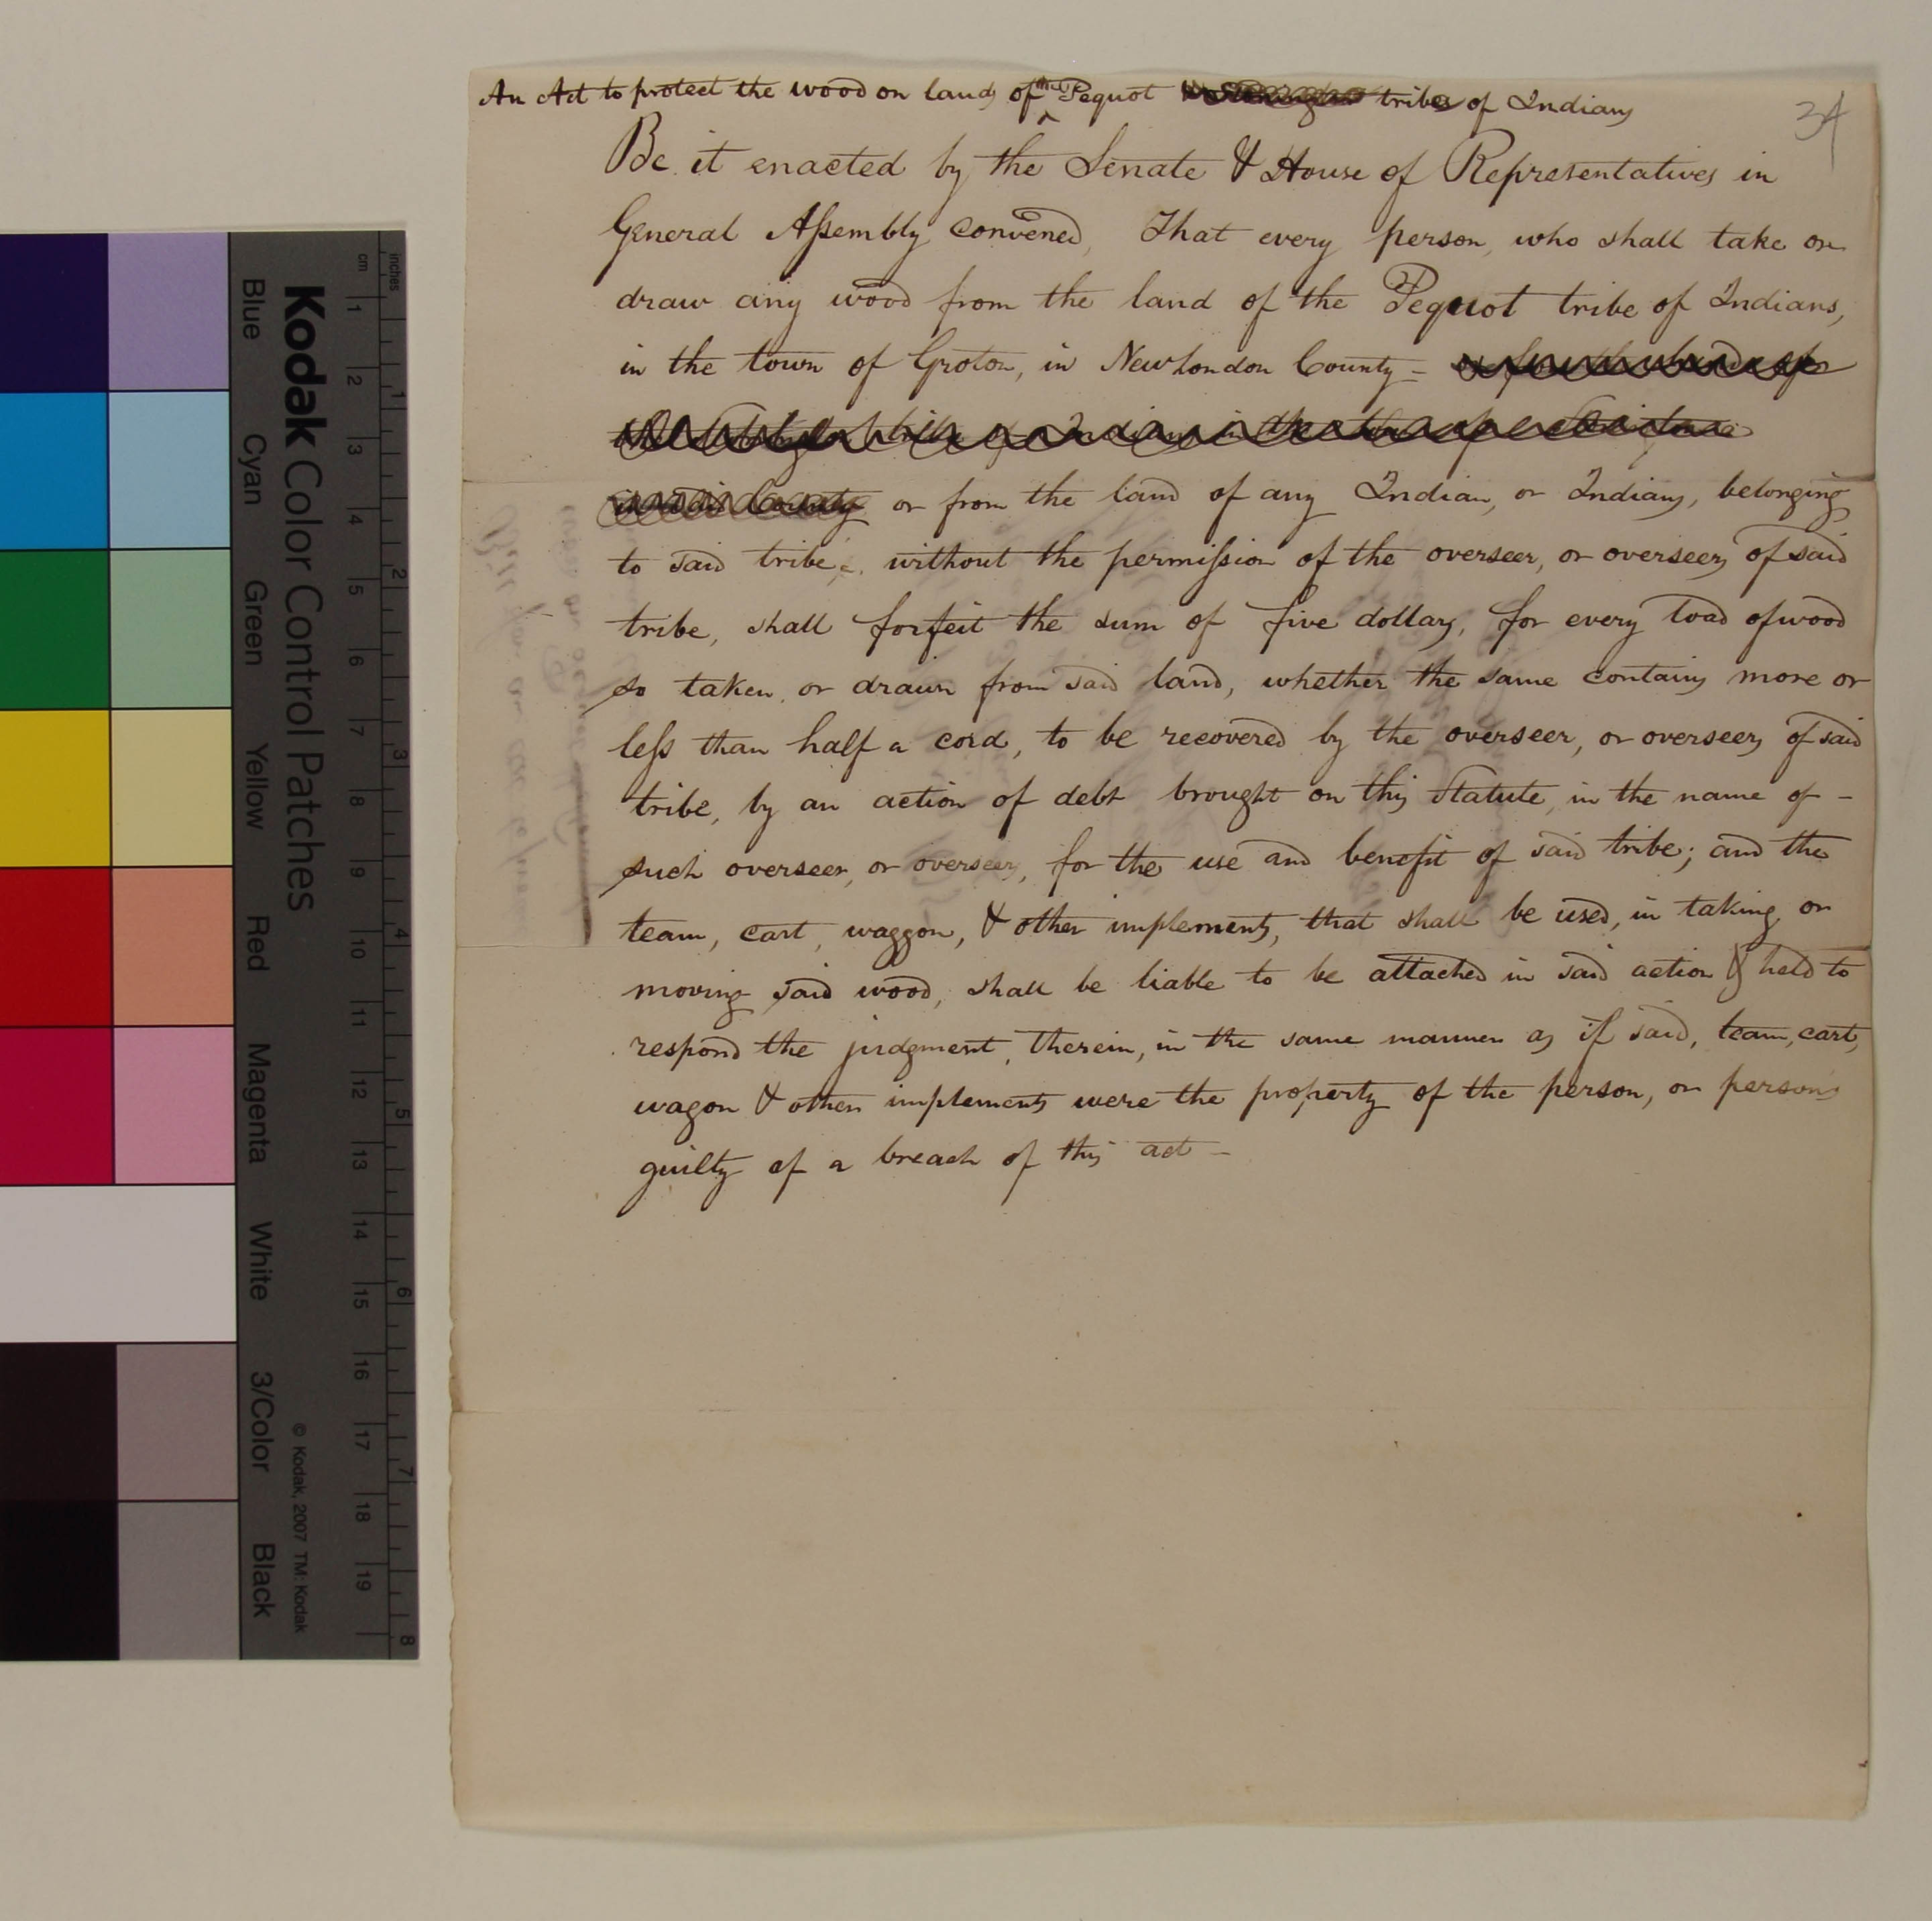 An Act to protect the wood on lands of the Pequot tribes of Indians
34
Be it enacted by the Senate & House of Representatives in
General Assembly convened, That every person, who shall take or
draw any wood from the land of the Pequot tribe of Indians,
in the town of Groton, in New London County – or from the land of
the Stonington tribe of Indians in the town of
in said County or from the land of any Indian, or Indians, belonging
to said tribe, without the permission of the overseer, or overseers of said
tribe, shall forfeit the sum of five dollars, for every load of wood
so taken, or drawn from said land, whether the same contains more or
less than half a cord, to be recovered by the overseer, or overseers of said
tribe, by an action of debt brought on this Statute, in the name of –
such overseer, or overseers, for the use and benefit of said tribe; and the
team, cart, waggon, & other implements, that shall be used, in taking, or
moving said wood, shall be liable to be attached in said action & held to
respond the judgment, therein, in the same manner as if said, team, cart,
wagon & other implements were the property of the person, or persons
guilty of a breach of this act –
Kodak Color Control Patches
Blue Cyan Green Yellow Red Magenta White 3/Color Black
© Kodak, 2007 TM: Kodak
cm 1 2 3 4 5 6 7 8 9 10 11 12 13 14 15 16 17 18 19
inches 1 2 3 4 5 6 7 8